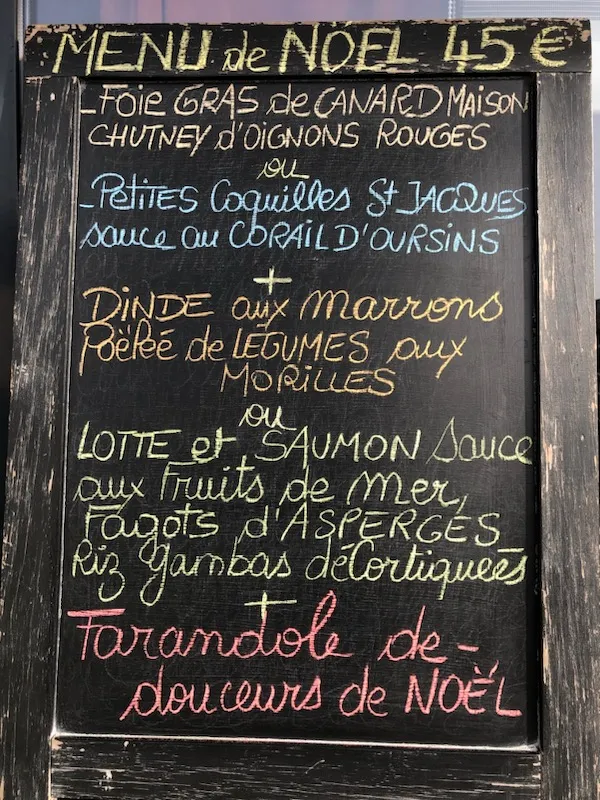 MENU de NÖEL 45€
-Foie GRAS de CANARD MAISON
CHUTNEY d'OIGNONS ROUGES
ou
-PETITES Coquilles St JACQUES
sauce au CORAIL D'OURSINS
+
DINDE aux Marrons
Poëlée de LÉGUMES aux
MORILLES
ou
LOTTE et SAUMON Sauce
aux Fruits de Mer,
Fagots d'ASPERGES
Riz gambas décortiquées
+
Farandole de-
douceurs de NOËL